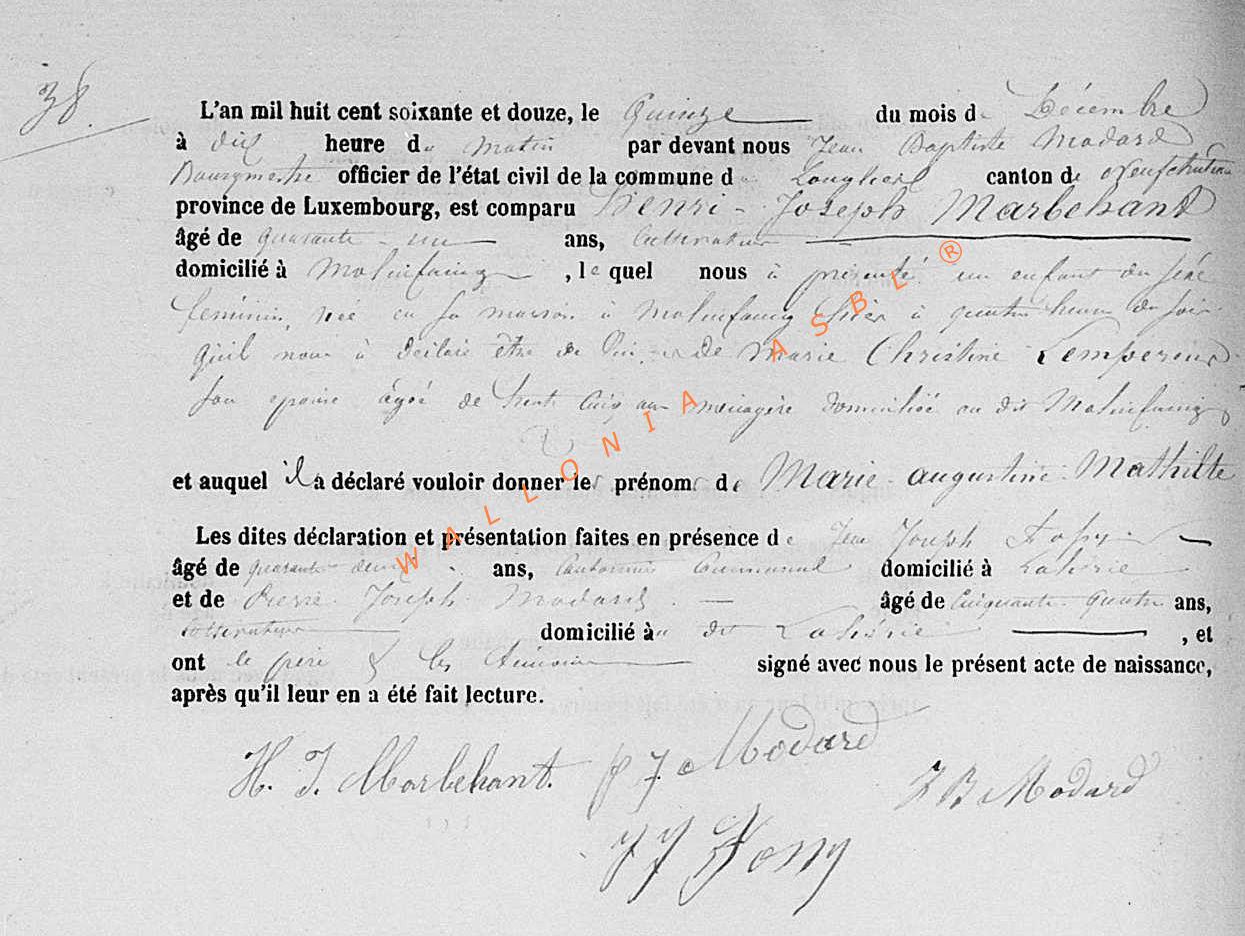 38
L'an mil huit cent soixante et douze, le Quinze du mois de Décembre
à dix heure du matin par devant nous Jean Baptiste Modard
Bourgmestre officier de l'état civil de la commune de Longlier canton de Neufchateau
province de Luxembourg, est comparu Henri-Joseph Marbehant
âgé de quarante-un ans, Cultivateur
domicilié à Molinfaing, le quel nous à présenté un enfant du sexe
féminin, née en sa maison à Molinfaing hier à quatre heure du soir
qu'il nous à déclaré être de lui et de Marie Christine Lempereur
son épouse âgée de trente ans ménagère domiciliée au dit Molinfaing
et auquel il a déclaré vouloir donner les prénoms de Marie augustine Mathilte
Les dites déclaration et présentation faites en présence de Jean Joseph
âgé de quarante deux ans, Cantonnier Communal domicilié à Laherie
et de Pierre Joseph Modard âgé de Cinquante quatre ans,
Cultivateur domicilié au dit Lahérie, et
ont le père & les témoins signé avec nous le présent acte de naissance,
après qu'il leur en a été fait lecture.
H. J. Marbehant. p J Modard
J B Modard
J J
WALLONIA ASBL ®